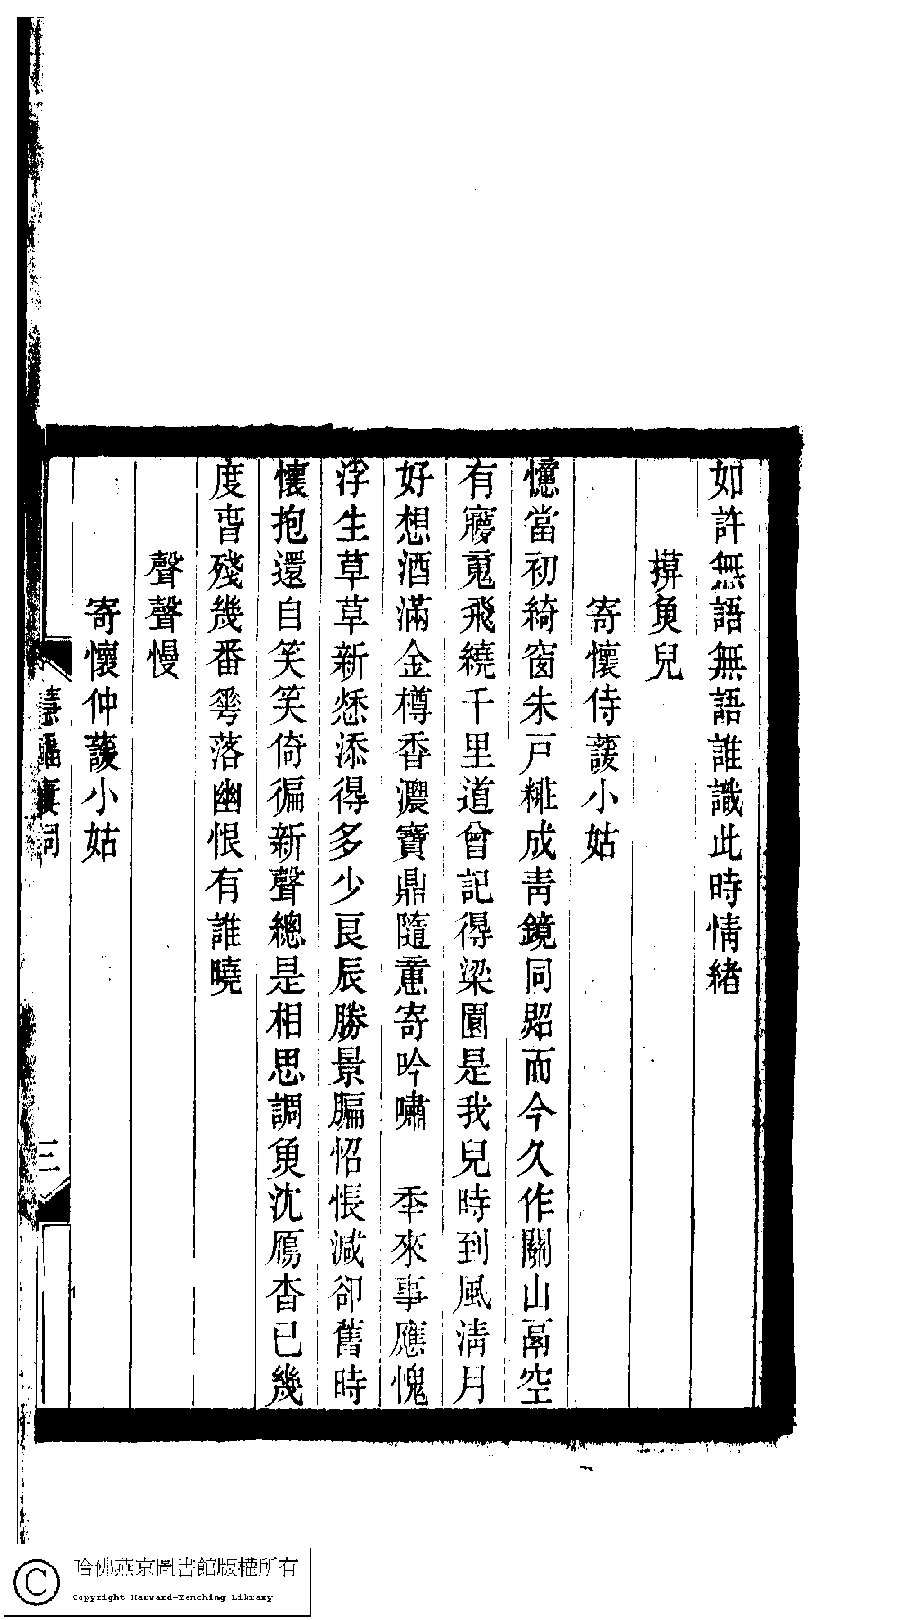 如許無語無語誰識此時情緒
摸魚兒
寄懷侍蘐小姑
憶當初綺窗朱戶粧成靑鏡同照而今久作關山鬲空
有寢䰟飛繞千里道曾記得梁園是我兒時到風淸月
好想酒滿金樽香濃寶鼎隨意寄吟嘯　秊來事應愧
浮生草草新愁添得多少良辰勝景牖怊悵減卻舊時
懷抱還自笑笑倚徧新聲總是相思調魚沈鴈杳已幾
度舂殘幾番雩落幽恨有誰曉
聲聲慢
寄懷仲蘐小姑
三
哈佛燕京圖書館版權所有
Copyright Harvard-Yenching Library